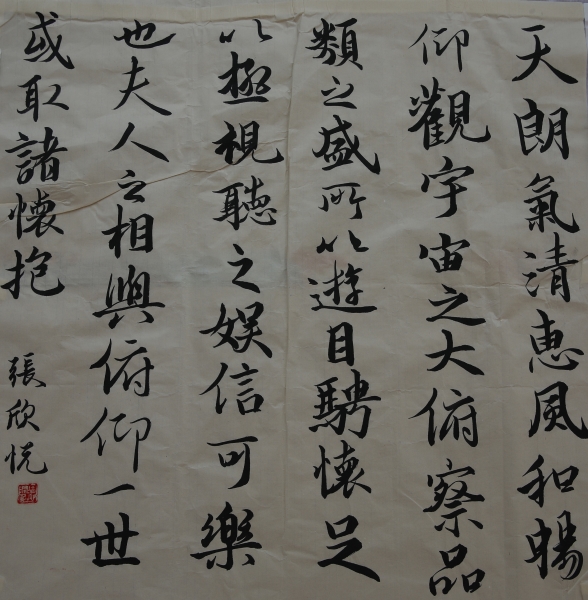 天朗氣清惠風和暢
仰觀宇宙之大俯察品
類之盛所以遊目騁懷足
以極視聽之娱信可樂
也夫人之相與俯仰一世
或取諸懷抱
張欣悦